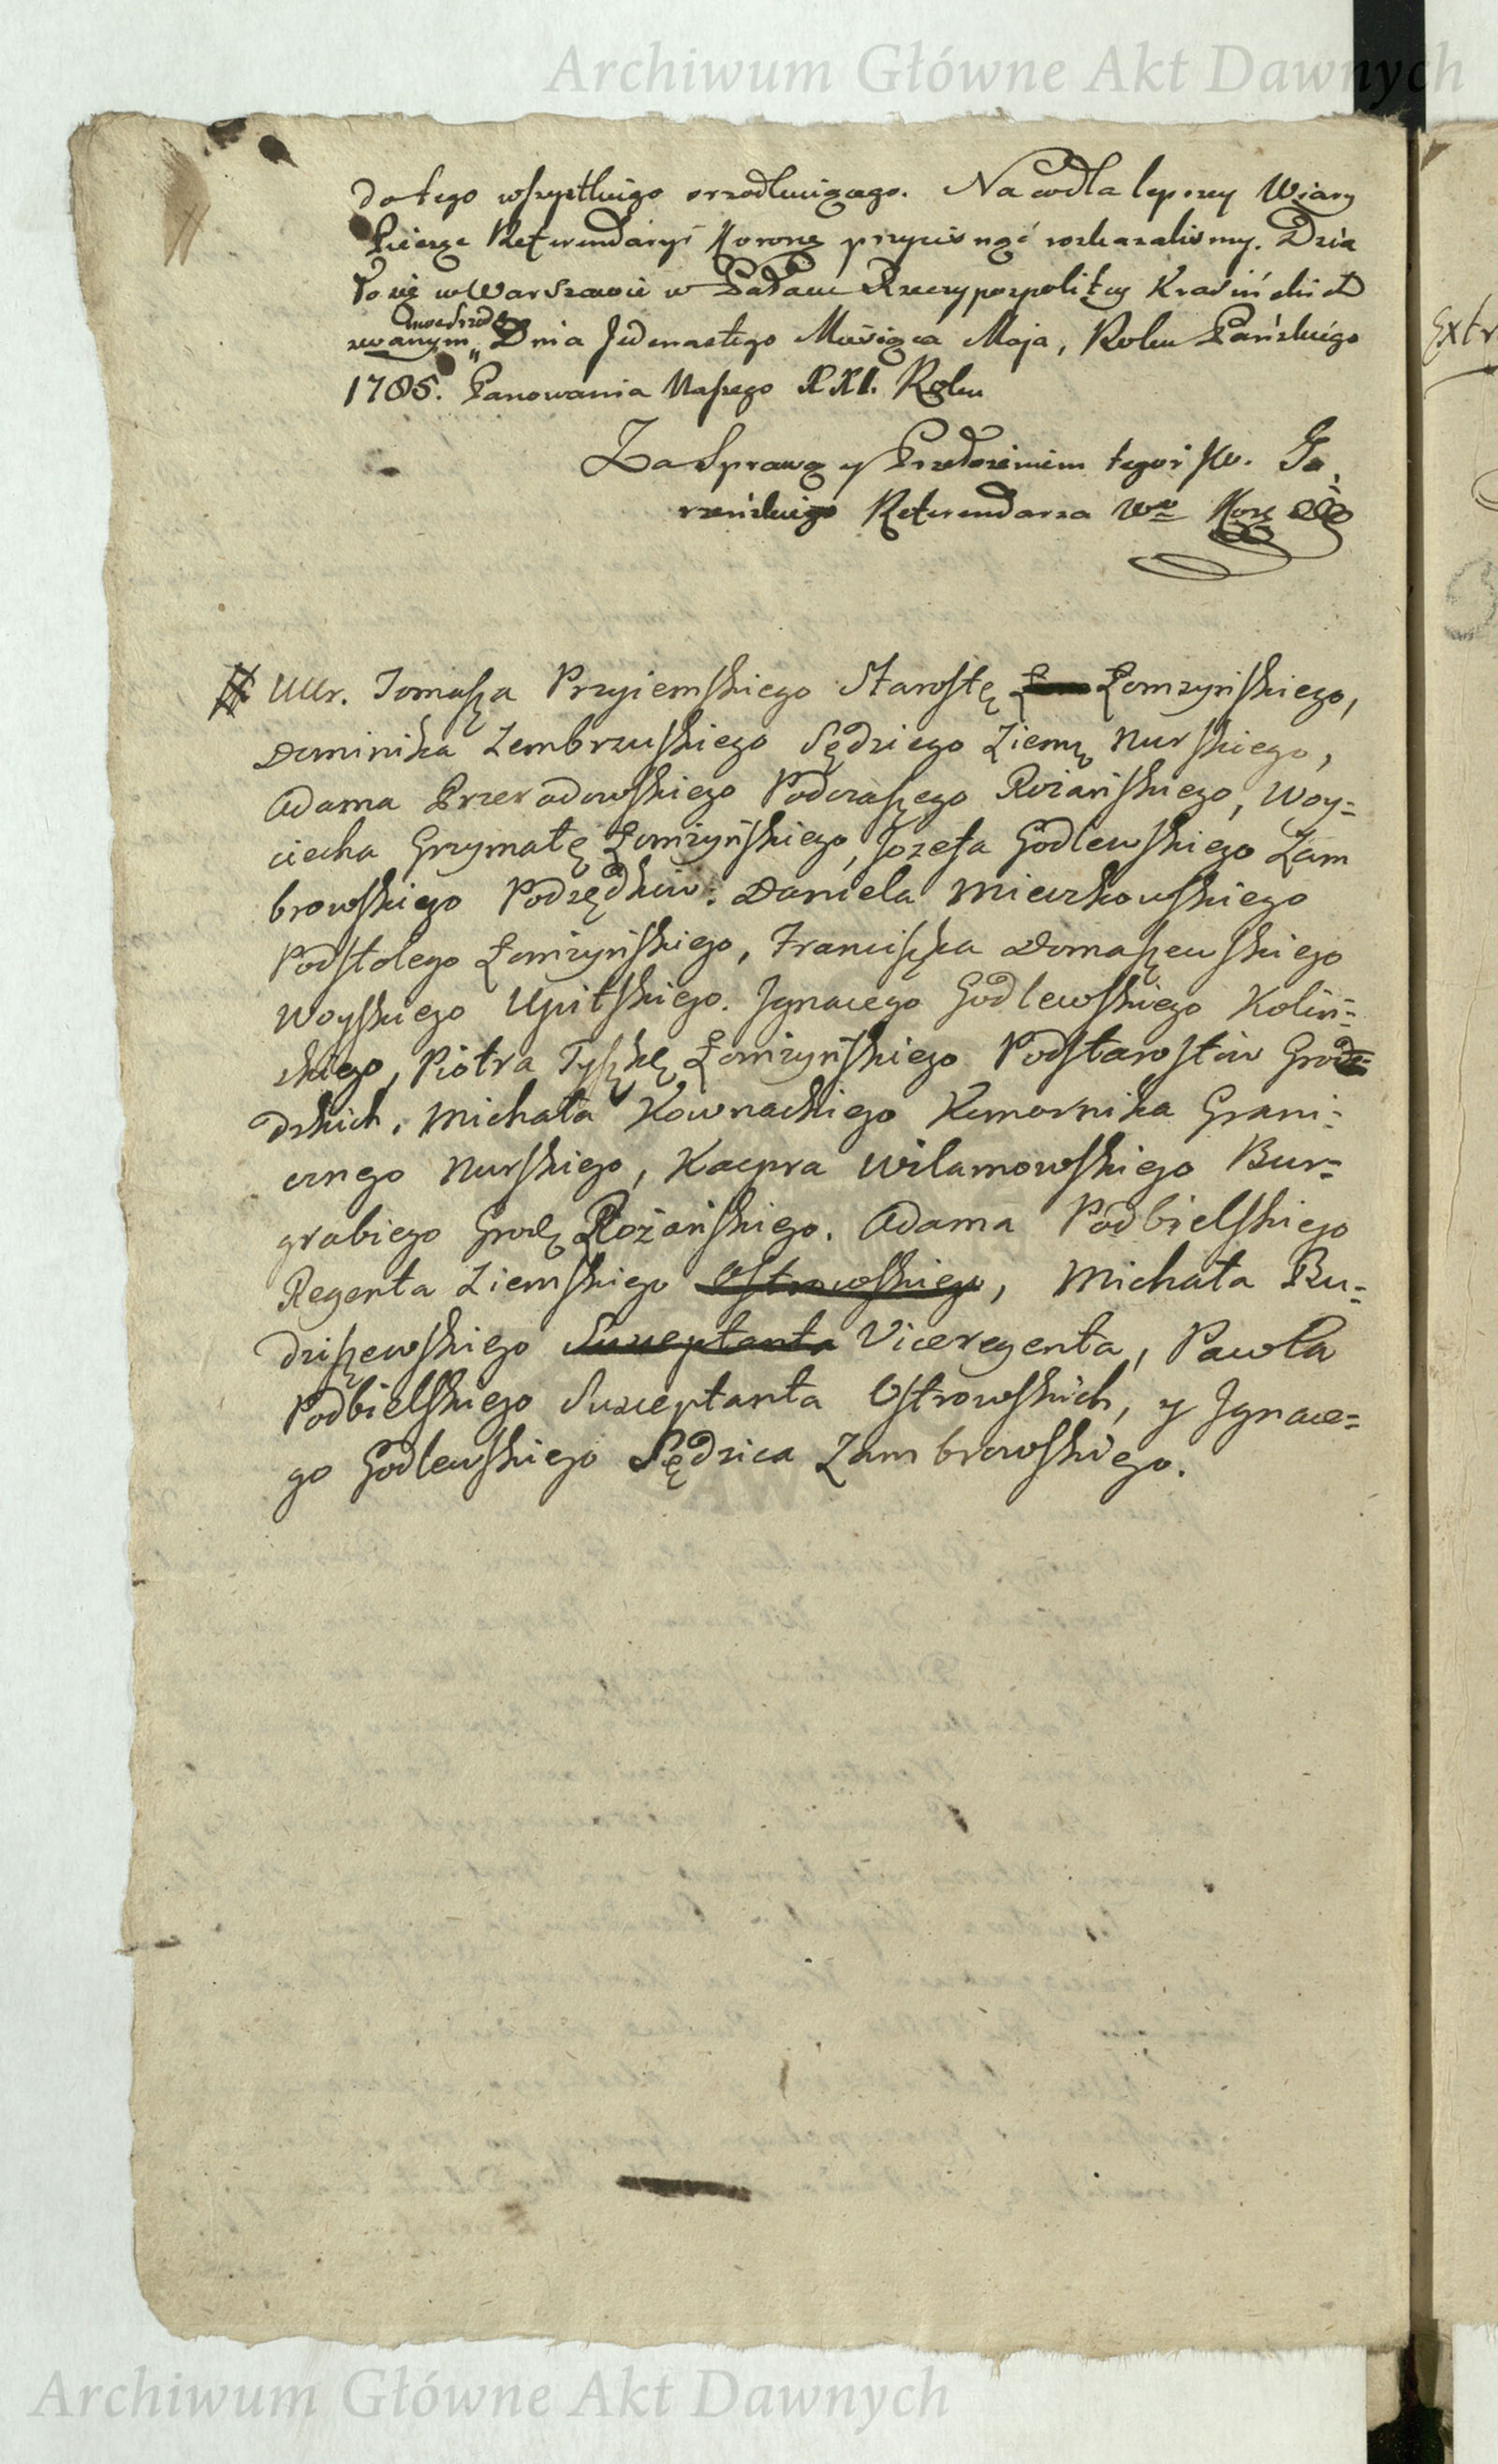 Archiwum Główne Akt Dawnych
do tego wszystkiego Na co dla lepszey Wiary
Pieczęć Referendaryi Koronę przycisnąć rozkazaliśmy. Dzia
ło się w Warszawie w Pałacu Rzeczypospolitey Krasińskich
zwanym, Dnia Jedenastego Miesiąca Maja, Roku Pańskiego
1785. Panowania Naszego XXI. Roku
Za Sprawą y Przełożeniem tegoż JW. Go,
rzeńskiego Referendarza
Extr
Ur. Tomasza Przyiemskiego Starostę Łomzyńskiego,
Dominika Zembrzuskiego Sędziego Ziemę Nurskiego,
Adama Przeradowskiego Podczaszego Rożańskiego, Woy=
ciecha Grzymałę Łomżyńskiego, Jozefa Godlewskiego Zam
browskiego Podsędków: Daniela Mieczkowskiego
Podstolego Łomżyńskiego, Franciszka Domaszewskiego
Woyskiego Upitskiego. Jgnacego Godlewskiego Koliń=
skiego, Piotra Tyszkę Łomżyńskiego Podstarostów Gro
dzkich, Michała Kownackiego Komornika Grani=
cznego Nurskiego, Kacpra Wilamowskiego Bur=
grabiego Grodz Rożańskiego. Adama Podbielskiego
Regenta Ziemskiego Ostrowskiego, Michała Bu=
dziszewskiego Susceptanta Viceregenta, Pawła
Podbielskiego Susceptanta Ostrowskich, y Jgnace=
go Godlewskiego Sędzica Zambrowskiego.
Archiwum Główne Akt Dawnych